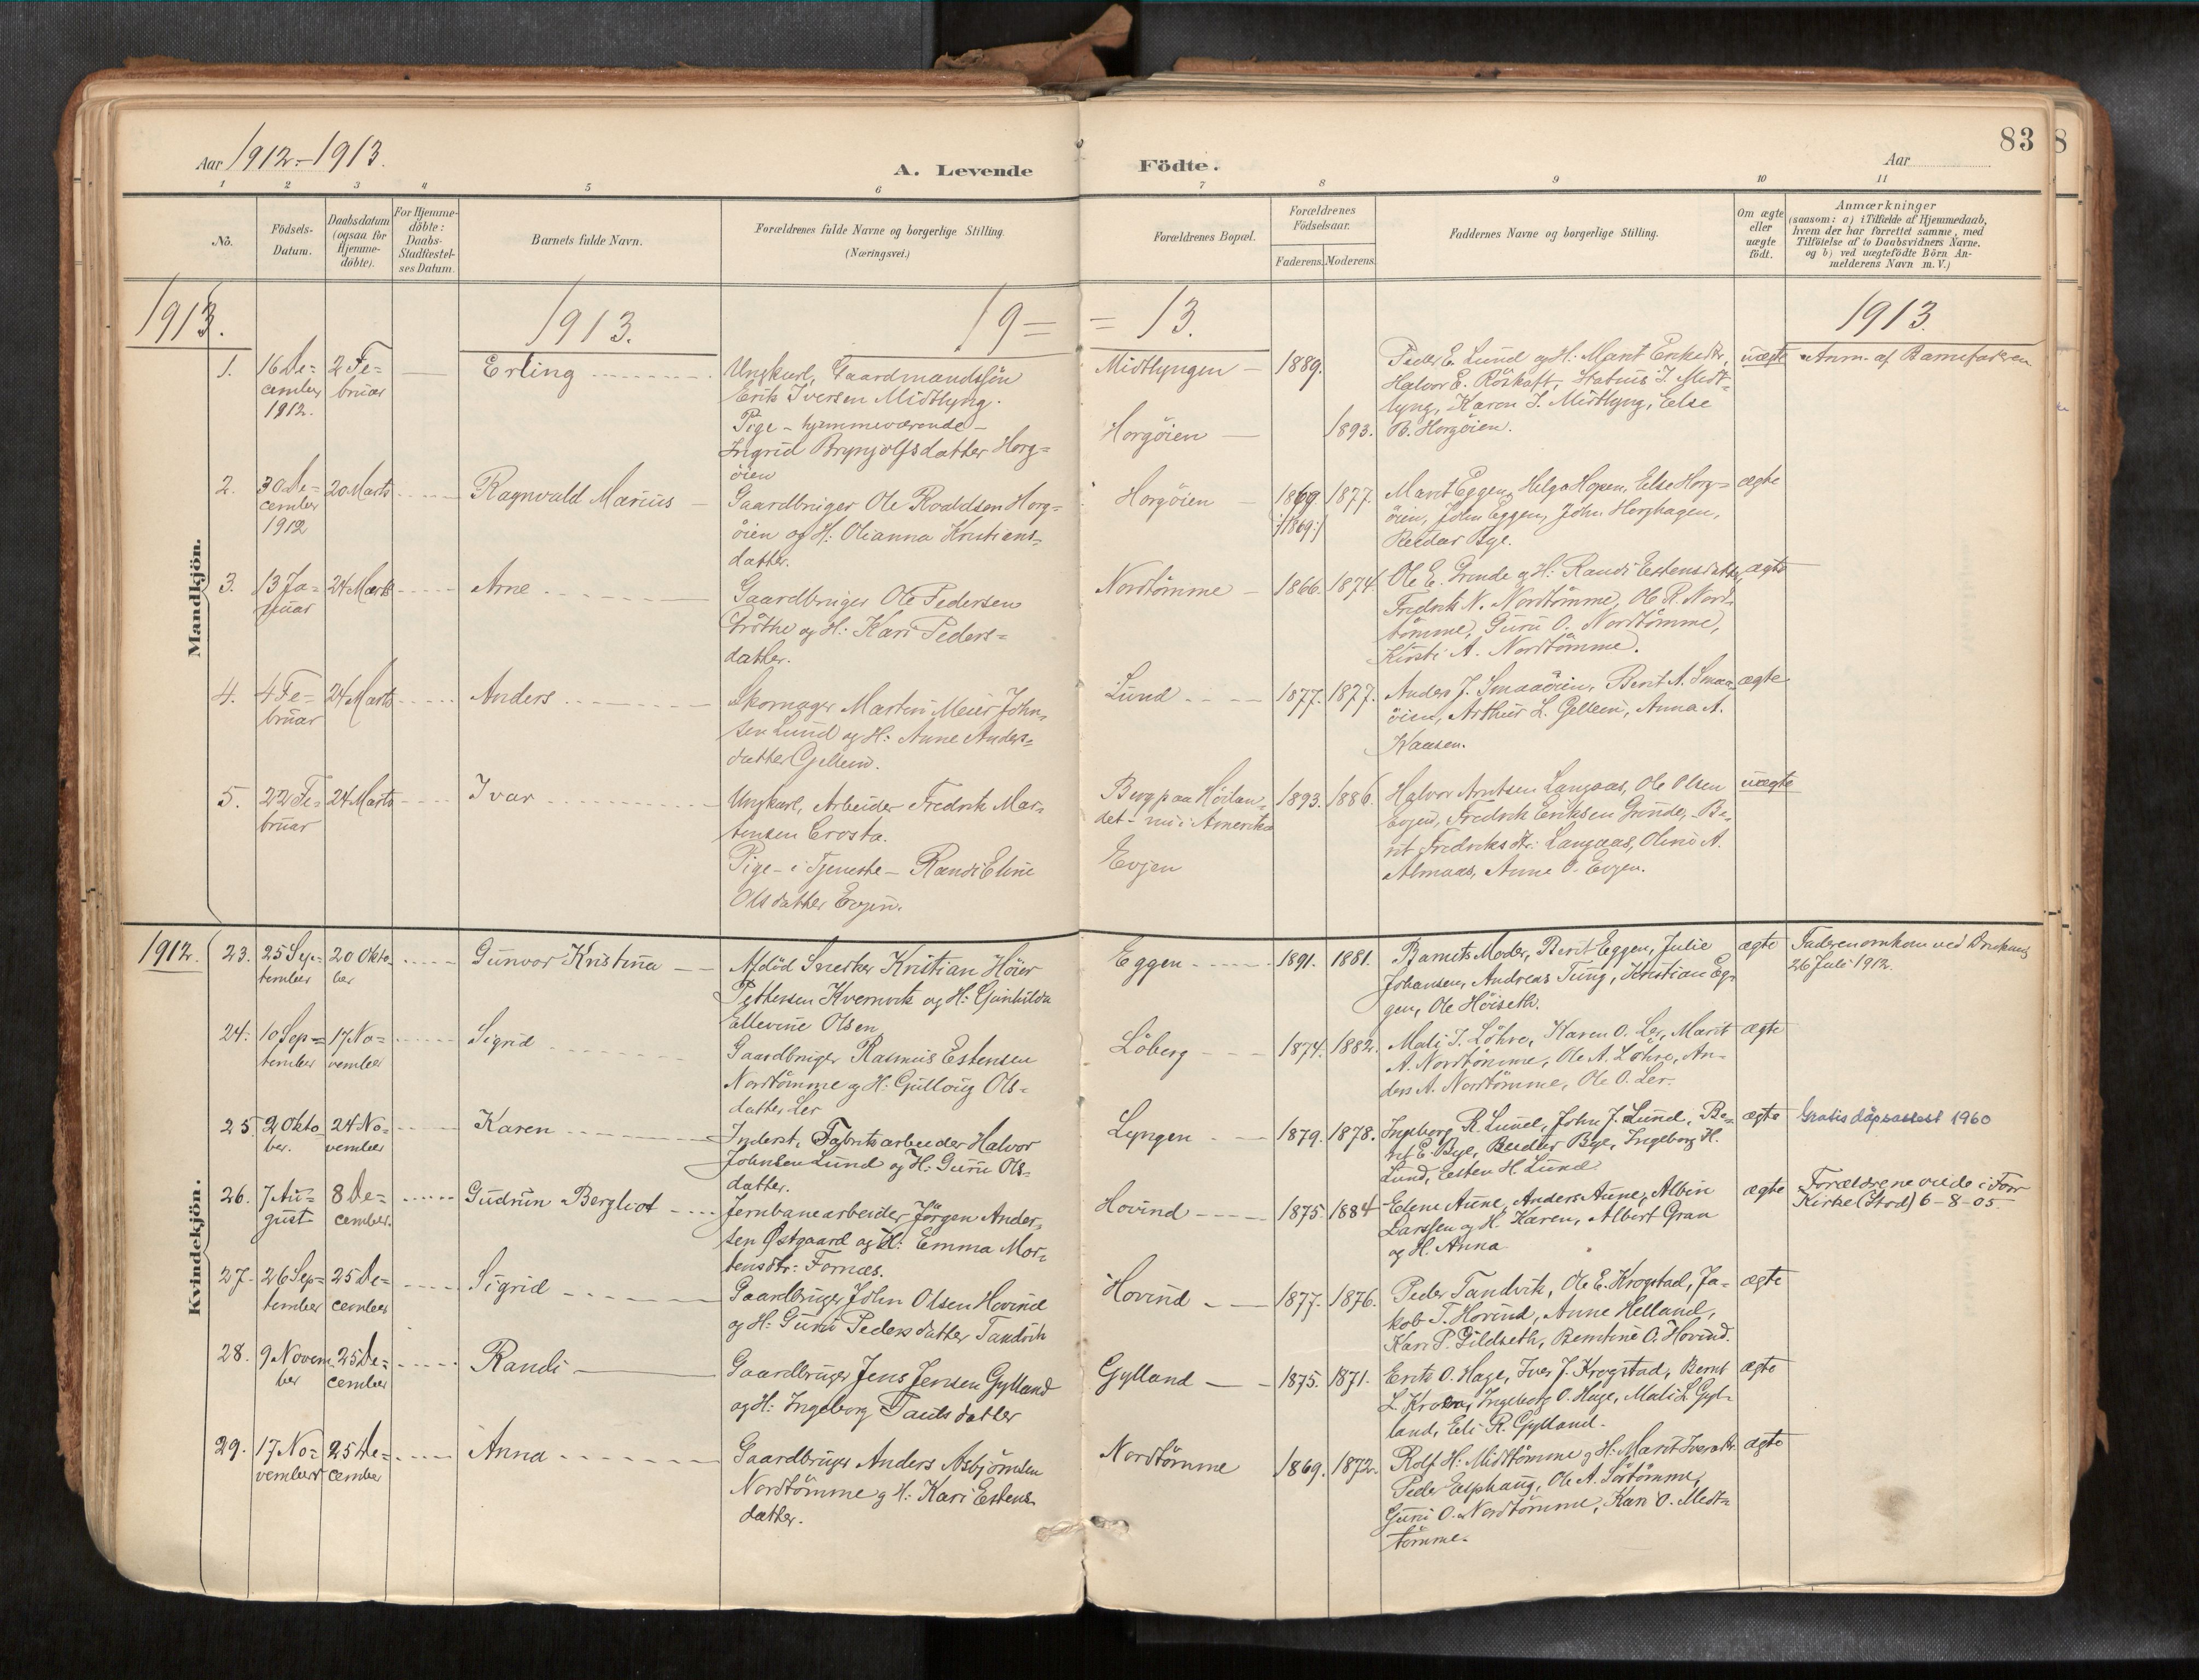 83
Aar 1912-1913.
A. Levende Födte.
Aar
1 2 3 4 5 6 7 8 9 10 11
No.
Födsels-
Datum.
Daabsdatum
(ogsaa for
Hjemme-
döbte).
For Hjemme-
döbte:
Daabs-
Stadfæstel-
ses Datum.
Barnets fulde Navn.
Forældrenes fulde Navne og borgerlige Stilling.
(Næringsvei.)
Forældrenes Bopæl.
Forældrenes
Födselsaar.
Faderens. Moderens.
Faddernes Navne og borgerlige Stilling.
Om ægte
eller
uægte
födt.
Anmærkninger
(saasom: a) i Tilfælde af Hjemmedaab,
hvem der har forrettet samme, med
Tilföielse af to Daabsvidners Navne.
og b) ved uægtefödte Börn An-
melderens Navn m. V.)
1913. 1913. 19= =13. 1913.
Mandkjön.
1.
16 De=
cember
1912.
2 Fe=
bruar
Erling
Ungkarl, Gaardmandssön
Erik Iversen Midtlyng.
Pige - hjemmeværende -
Ingrid Brynjolfsdatter Horg=
öien
Midtlyngen
Horgöien
1889.
1893.
Peder E. Lund og H: Marit Eriksdtr,
Halvor E. Röskaft, I. Midt-
lyng, Karen I. Midtlyng, Else
B. Horgöien.
uægte
Anm. af Barnefaderen
2.
30 De=
cember
1912
20 Marts
Ragnvald Marius
Gaardbruger Ole Roaldsen Horg=
öien og H: Olianna Kristians=
datter.
Horgöien
1869
/:1869:/
1877.
Marit Eggen, Helga Hopen, Else Horg=
öien, John Eggen, John Horghagen,
Reidar Bye.
ægte
3.
13 Ja=
nuar
24 Marts
Arne
Gaardbruger Ole Pedersen
Gröthe og H: Kari Peders=
datter.
Nordtömme
1866.
1874.
Ole E. Grinde og H: Randi Estensdatter,
Fredrik N. Nordtömme, Ole R. Nord-
tömme, Guru O. Nordtömme,
Kirsti A. Nordtömme.
ægte
4.
4 Fe=
bruar
24 Marts
Anders
Skomager Martin Meier John-
sen Lund og H: Anne Anders=
datter Gellein.
Lund
1877.
1877.
Anders J. Smaaöien, Berit A. Smaa-
öien, Arthur L. Gellein, Anna A.
Kaasen.
ægte
5.
22 Fe=
bruar
24 Marts
Ivar
Ungkarl, Arbeider Fredrik Mar-
tinsen Crosta.
Pige - i Tjeneste - Randi Eline
Olsdatter Evjen.
Berg paa Höilan-
det - nu i Amerika
Evjen
1893.
1886.
Halvor Arntsen Langaas, Ole Olsen
Evjen, Fredrik Eriksen Grinde, Be-
rit Fredriksdtr: Langaas, Oline A.
Almaas, Anne O. Evjen.
uægte
1912.
Kvindekjön.
23.
25 Sep-
tember
20 Okto-
ber
Gunvor Kristina
Afdöd Snedker Kristian Höier
Pettersen Kvernvik og H: Gunhilda
Ellevine Olsen
Eggen
1891.
1881.
Barnets Moder, Berit Eggen, Julie
Johansen, Andreas Tung, Kristian Eg-
gen, Ole Höiseth.
ægte
Faderen omkom ved Drukning
26 Juli 1912.
24.
10 Sep=
tember
17 No=
vember
Sigrid
Gaardbruger Rasmus Estensen
Nordtömme og H: Gullaug Ols-
datter Ler
Löberg
1874.
1882.
Mali I. Löhre, Karen O. Ler, Marit
A. Nordtömme, Ole A. Löhre, An-
ders A. Nordtömme, Ole O. Ler.
ægte
25.
2 Okto-
ber.
24 No=
vember
Karen
Inderst, Fabrikarbeider Halvor
Johnsen Lund og H: Guru Ols-
datter.
Lyngen
1879.
1878.
Ingeborg R. Lund, John J. Lund, Be-
rit E. Bye, Reidar Bye, Ingeborg H.
Lund, Esten H. Lund
ægte
Gratis dåpsattest 1960
26.
7 Au-
gust
8 De=
cember.
Gudrun Bergliot
Jernbanearbeider Jörgen Ander-
sen Østgaard og H: Emma Mor-
tensdtr: Fornes.
Hovind
1875
1884
Edene Aune, Anders Aune, Albin
Larssen og H. Karen, Albert Gran
og H. Anna
ægte
Forældrene viede i For
Kirke (Stod) 6-8-05.
27.
26 Sep=
tember
25 De=
cember
Sigrid
Gaardbruger John Olsen Hovind
og H: Guru Pedersdatter Tandvik
Hovind
1877.
1876.
Peder Tandvik, Ole E. Krogstad, Ja-
kob T. Hovind, Anne Helland,
Kari P. Gildseth, Berntine O. Hovind.
ægte
28.
9 Novem-
ber
25 De=
cember
Randi
Gaardbruger Jens Jensen Gylland
og H: Ingeborg Paulsdatter
Gylland
1875.
1871.
Erik O. Hage, Iver J. Krogstad, Bernt
L. Ingeborg O. Hage, Mali L. Gyl-
land, Eli R. Gylland.
ægte
29.
17 No=
vember
25 De=
cember
Anna
Gaardbruger Anders Asbjörnsen
Nordtömme og H: Kari Estens-
datter.
Nordtömme
1869.
1872.
Rolf H: Midttömme og H: Marit Iversdtr.
Peder Esphaug, Ole A. Sörtömme,
Guru O. Nordtömme, Kari O. Midt-
tömme.
ægte